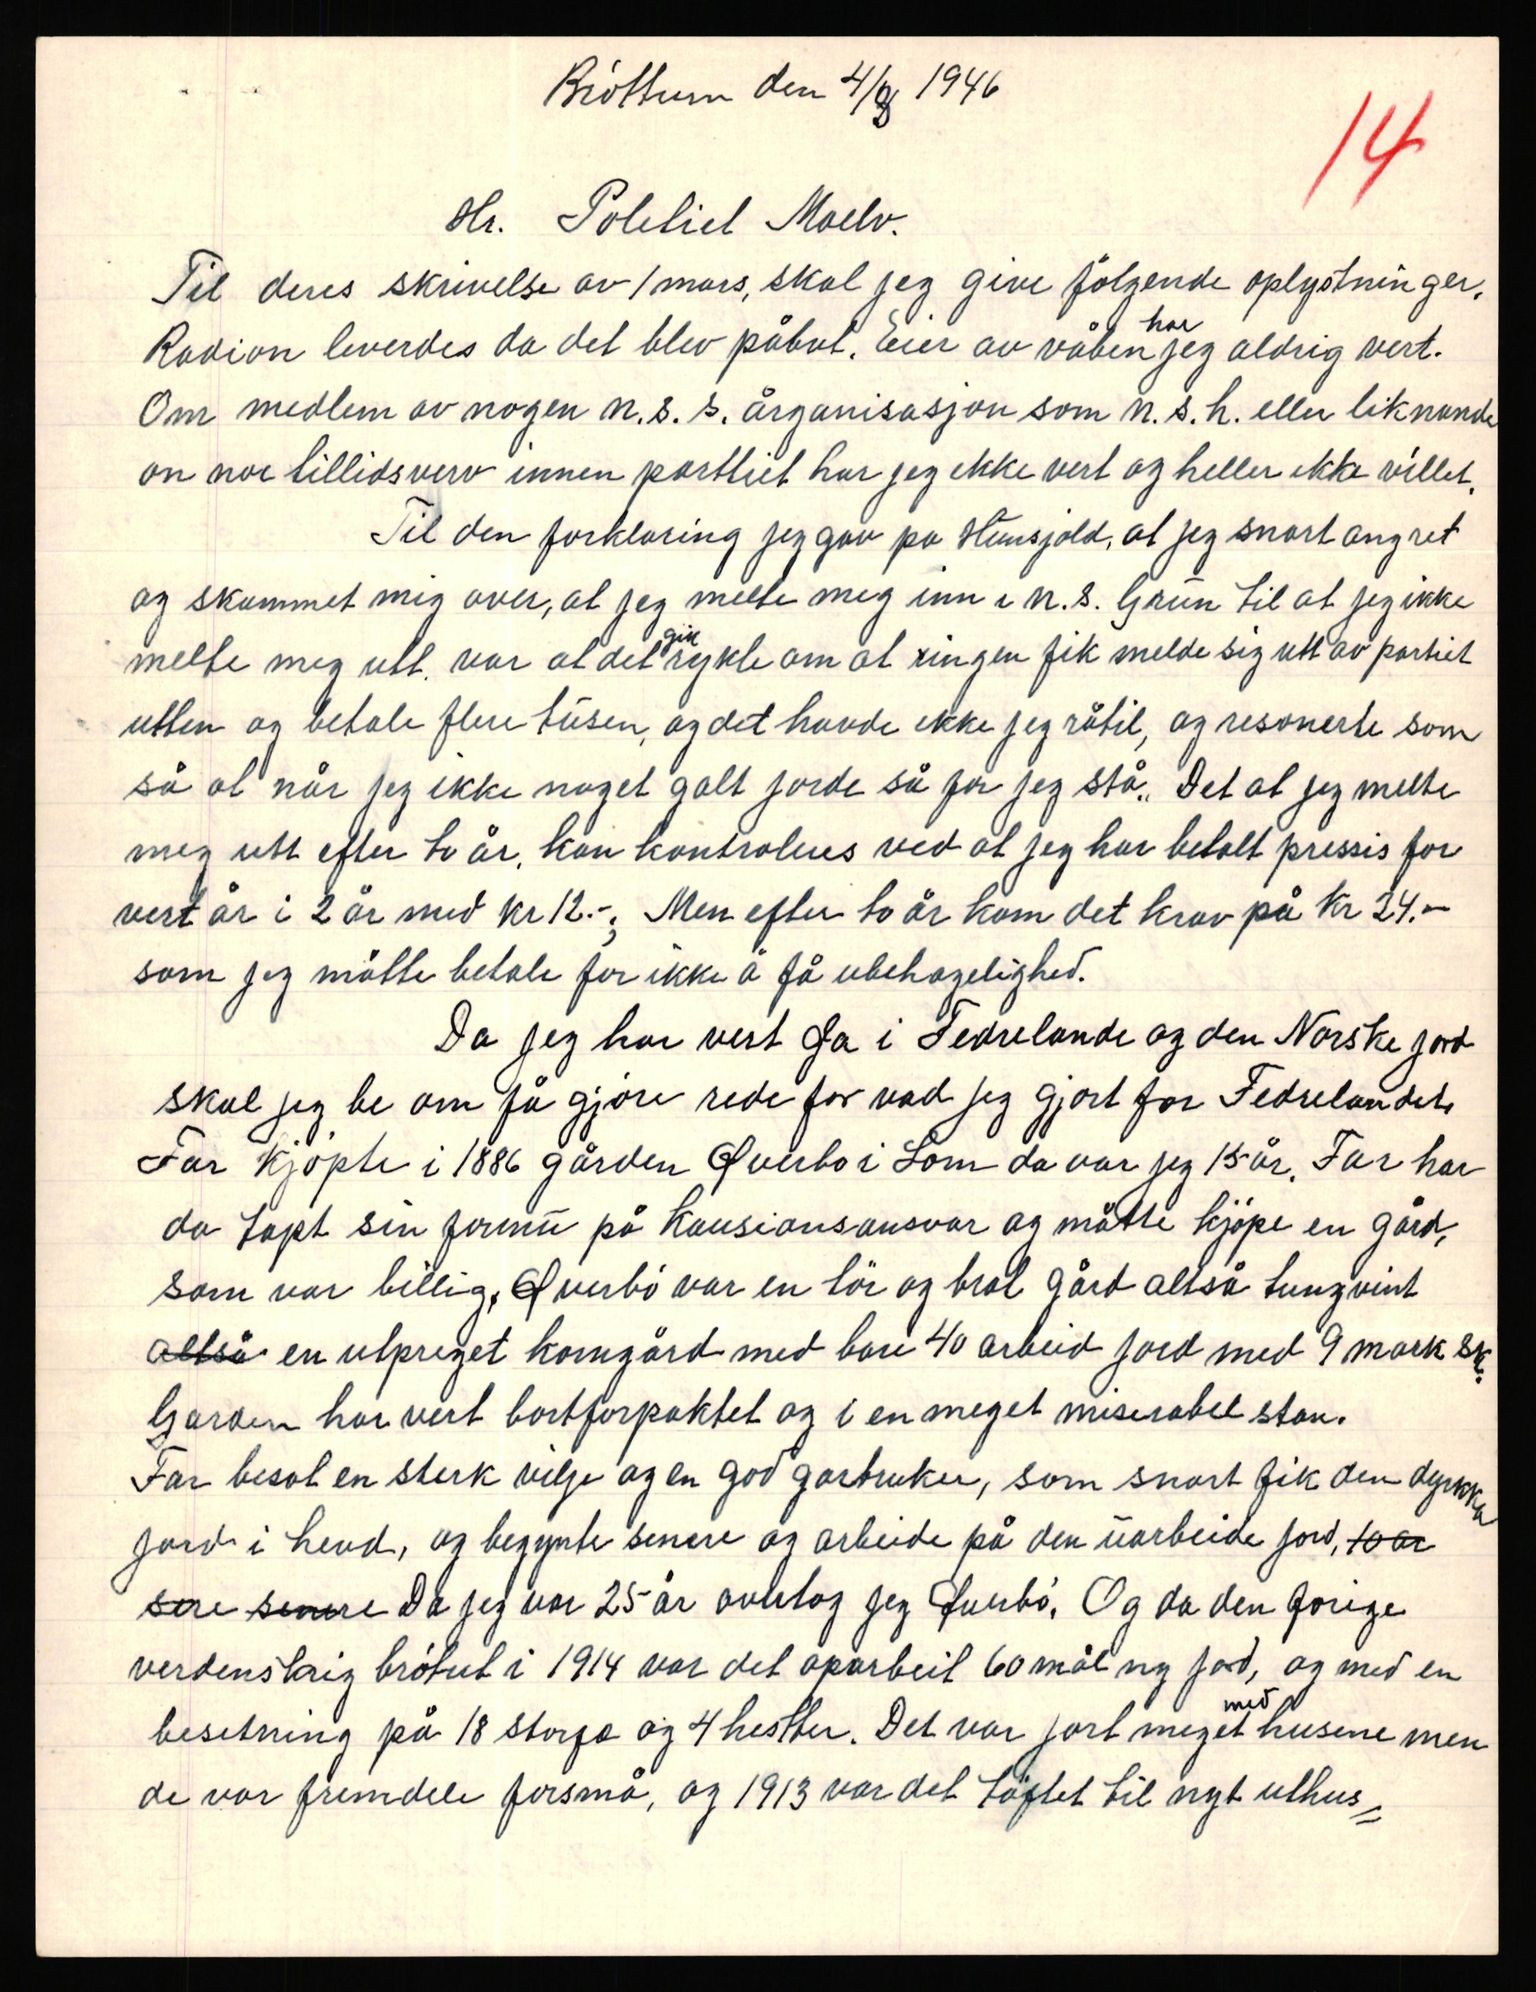 Bröttum den 4/3 1946
14
Hr. Politiet Moelv.
Til deres skrivelse av 1 mars, skal jeg give fölgende oplystninger.
Radion leverdes da det blev påbut. Eier av våben har jeg aldrig vert.
Om medlem av nogen n.s.s. årganisasjon som n.s.h. eller liknande
on noe tillidsverv innen parttiet har jeg ikke vert og heller ikke villet.
Til den forklaring jeg gav pa Hansjold, at jeg snart angret
og skammet mig over, at jeg melte meg inn i n.s. Grūn til at jeg ikke
melte meg utt. var at det gik rykte om at ingen fik melde sig utt av partiet
utten og betale flere tūsen, og det havde ikke jeg råtil, og resonerte som
så at når jeg ikke noget galt jorde så for jeg stå. Det at jeg melte
meg utt efter to år, kan kontroleres ved at jeg har betalt pressis for
vert år i 2 år med kr 12.-, Men efter to år kom det krav på kr 24.-
som jeg måtte betale for ikke å få ubehagelighed.
Da jeg har vert Ja i Fedrelande og den Norske jord
skal jeg be om få gjöre rede for vad jeg gjort for Fedrelandet.
Far kjöpte i 1886 gården Qverbo i Lom da var jeg 15 år. Far har
da tapt sin formū på kausionsansvar og måtte kjöpe en gård,
som var billig. Qverbö var en tör og brat gård altså tungvint
altså en utpreget korngård med bare 40 arbeid jord med 9 mark sk.
Garden har vert bortforpaktet og i en meget miserabel stan.
Far besat en sterk vilje og en god garbruker, som snart fik den dyrkka
jord i hevd, og begynte senere og arbeide på den ūarbeide jord, to ar
sere senere Da jeg var 25 år overtog jeg Qverbö. Og da den forige
verdenskrig brötut i 1914 var det oparbeit 60 mål ny jord, og med en
besetning på 18 storfe og 4 hestter. Det var jort meget med husene men
de var fremdele forsmå, og 1913 var det töftet til nyt uthus